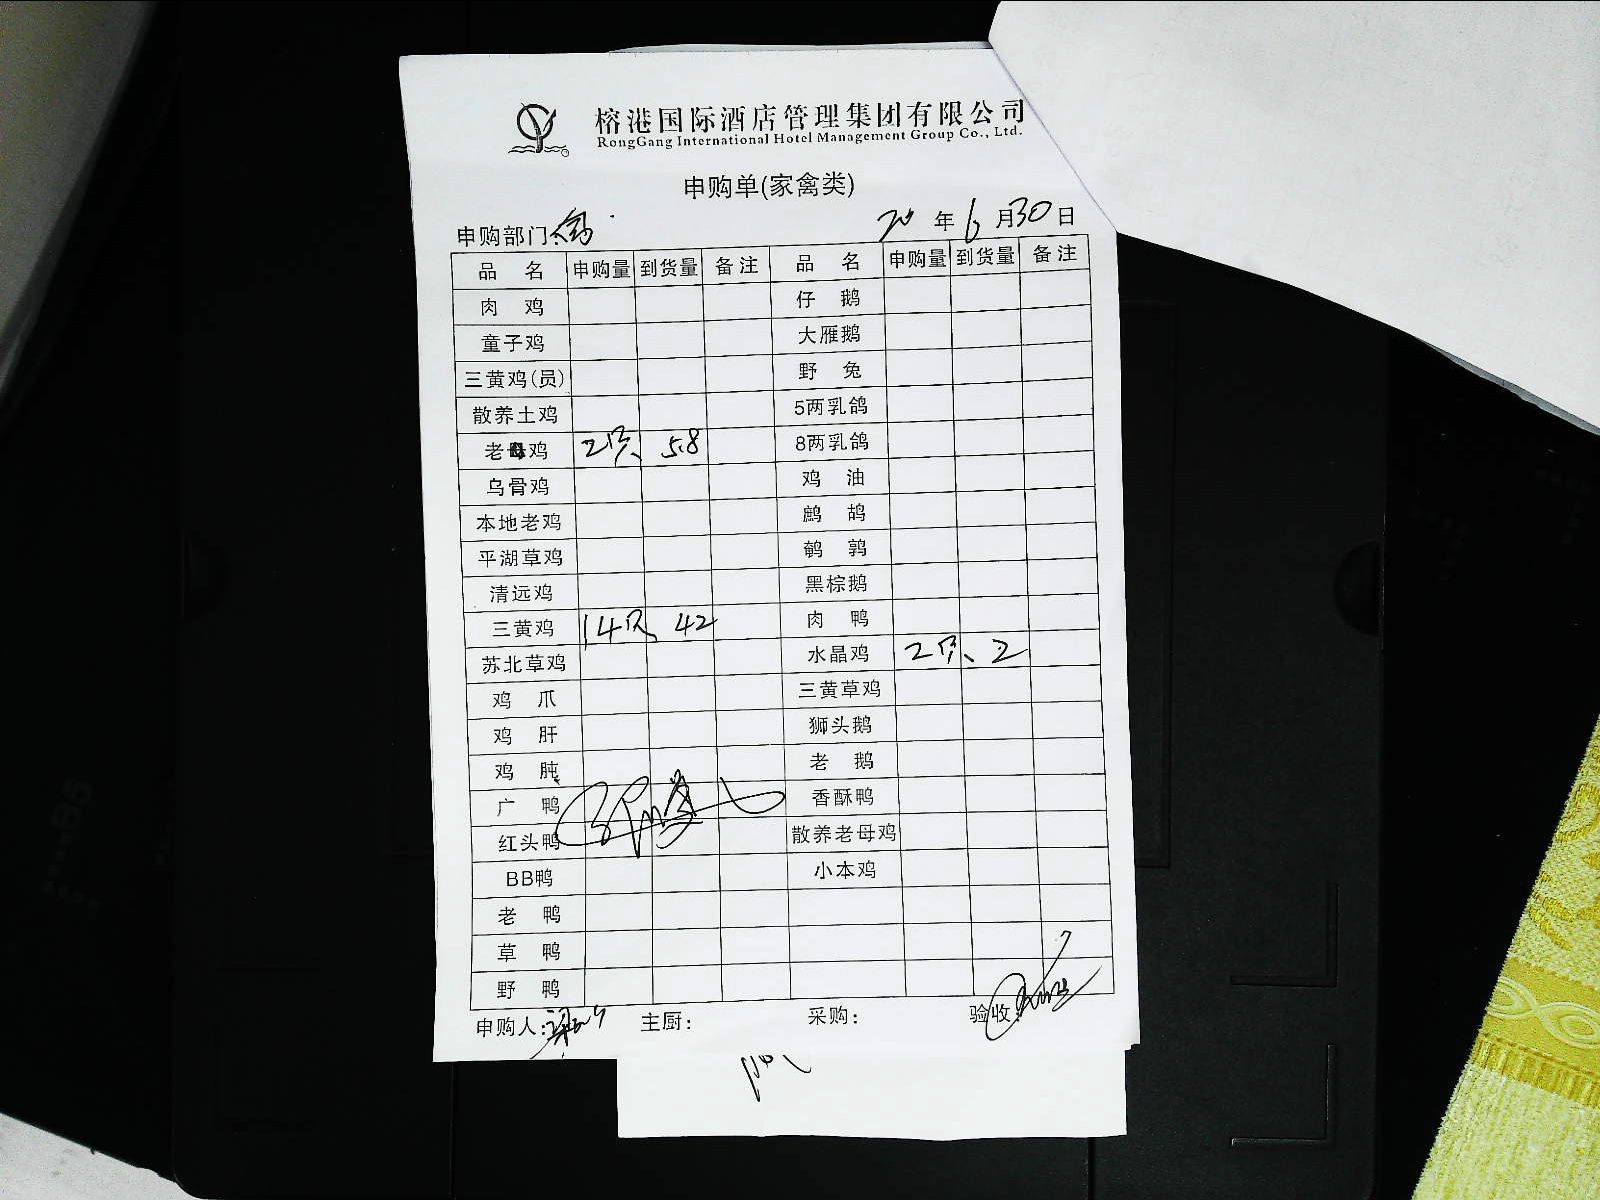 榕港国际酒店管理集团有限公司
RongGang International Hotel Management Group Co., Ltd.
申购单(家禽类)
申购部门: 年 6 月 30 日
品 名 申购量 到货量 备注 品 名 申购量 到货量 备注
肉 鸡 仔 鹅
童子鸡 大雁鹅
三黄鸡(员) 野 兔
散养土鸡 5两乳鸽
老母鸡 2只 5.8 8两乳鸽
乌骨鸡 鸡 油
本地老鸡 鹧 鸪
平湖草鸡 鹌 鹑
清远鸡 黑棕鹅
三黄鸡 14只 42 肉 鸭
苏北草鸡 水晶鸡 2只 2
鸡 爪 三黄草鸡
鸡 肝 狮头鹅
鸡 肫 老 鹅
广 鸭 香酥鸭
红头鸭 散养老母鸡
BB鸭 小本鸡
老 鸭
草 鸭
野 鸭
申购人: 主厨: 采购: 验收: